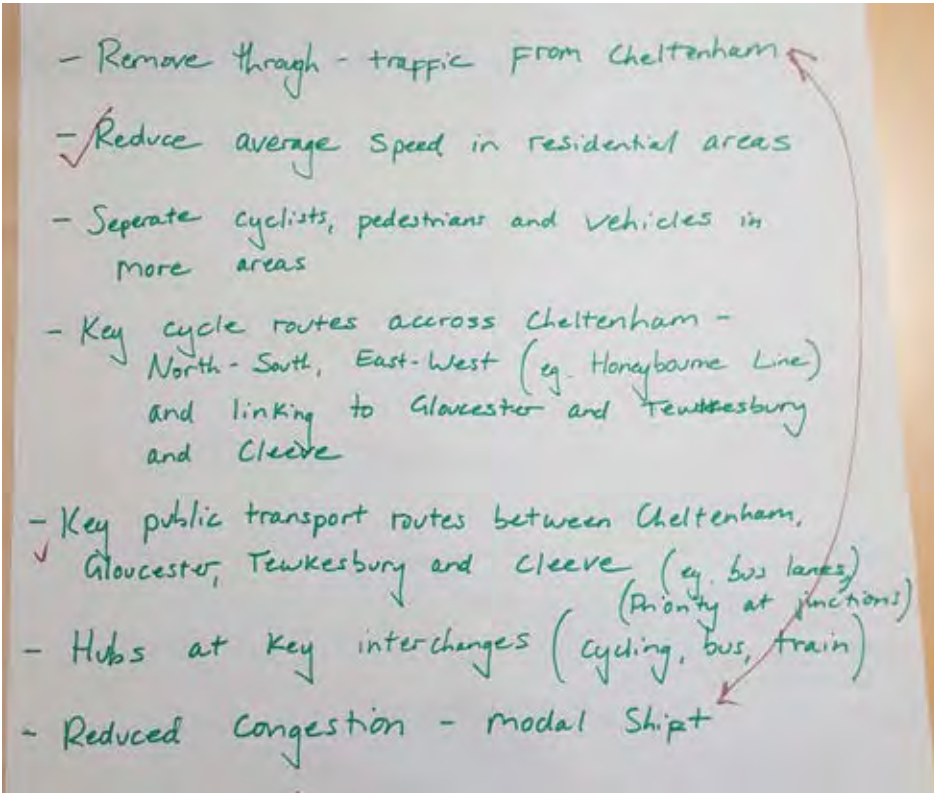 - Remove through - traffic from Cheltenham
- Reduce average speed in residential areas
- Seperate cyclists, pedestrians and vehicles in
more areas
- Key cycle routes accross Cheltenham -
North - South, East - West (eg. Honeybourne Line)
and linking to Gloucester and Tewkesbury
and Cleeve
- Key public transport routes between Cheltenham,
Gloucester, Tewkesbury and Cleeve (eg. bus lanes)
(Priority at junctions)
- Hubs at key interchanges (cycling, bus, train)
- Reduced Congestion - modal Shift